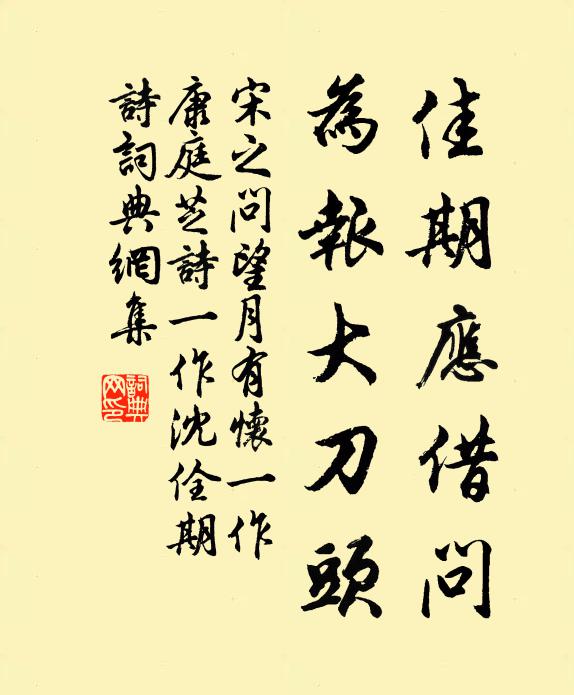 佳期應借問
為報大刀頭
宋之問望月有懷一作
康庭芝詩一作沈佺期
詩詞典網集
詞典網印